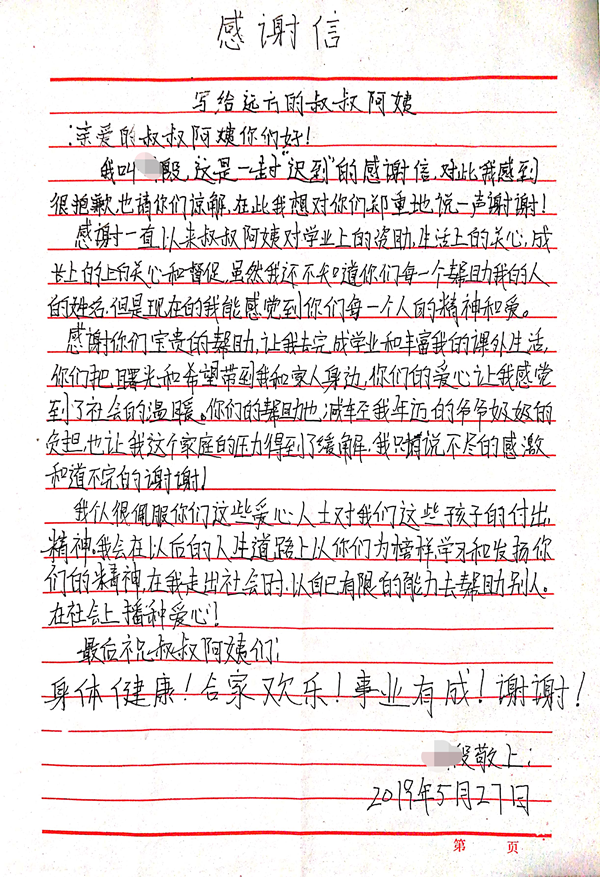 感谢信
写给远方的叔叔阿姨
亲爱的叔叔阿姨你们好!
我叫 殴,这是一封"迟到"的感谢信,对此我感到
很抱歉也请你们谅解,在此我想对你们郑重地说一声谢谢!
感谢一直以来叔叔阿姨对学业上的资助,生活上的关心,成
长上的上的关心和督促,虽然我还不知道你们每一个帮助我的人
的姓名,但是现在的我能感觉到你们每一个人的精神和爱。
感谢你们宝贵的帮助,让我去完成学业和丰富我的课外生活,
你们把曙光和希望带到我和家人身边,你们的爱心让我感觉
到了社会的温暖。你们的帮助也减轻我年迈的爷爷奶奶的
负担,也让我这个家庭的压力得到了缓解,我只有说不尽的感激
和道不完的谢谢!
我很佩服你们这些爱心人士对我们这些孩子的付出
精神。我会在以后的人生道路上以你们为榜样学习和发扬你
们的精神,在我走出社会时,以自己有限的能力去帮助别人。
在社会上播种爱心!
最后祝叔叔阿姨们:
身体健康!合家欢乐!事业有成!谢谢!
敬上:
2019年5月27日
第 页